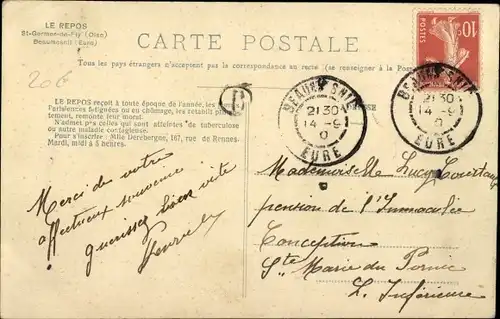 LE REPOS
St-Germer-de-Fly (Oise)
Beaumesnil (Eure)
CARTE POSTALE
Tous les pays étrangers n'acceptent pas la correspondance au recto (se renseigner à la Poste)
20€
LE REPOS reçoit à toute époque de l'année, les
Parisiennes fatiguées ou en chômage, les rétablit
tement, remonte leur moral.
N'admet pas celles qui sont atteintes de tuberculose
ou autre maladie contagieuse.
Pour s'inscrire : Mlle Derèbergue, 167, rue de Rennes.
Mardi, midi à 5 heures
10
BEAUMESNIL
21 30
14 -9
EURE
BEAUMESNIL
21 30
14 -9
EURE
Mademoiselle Lucy
pension de l'Immaculée
Conception
Ste Marie du Pornic
L. Inférieure
Merci de votre
affectueux souvenir
guérissez bien vite